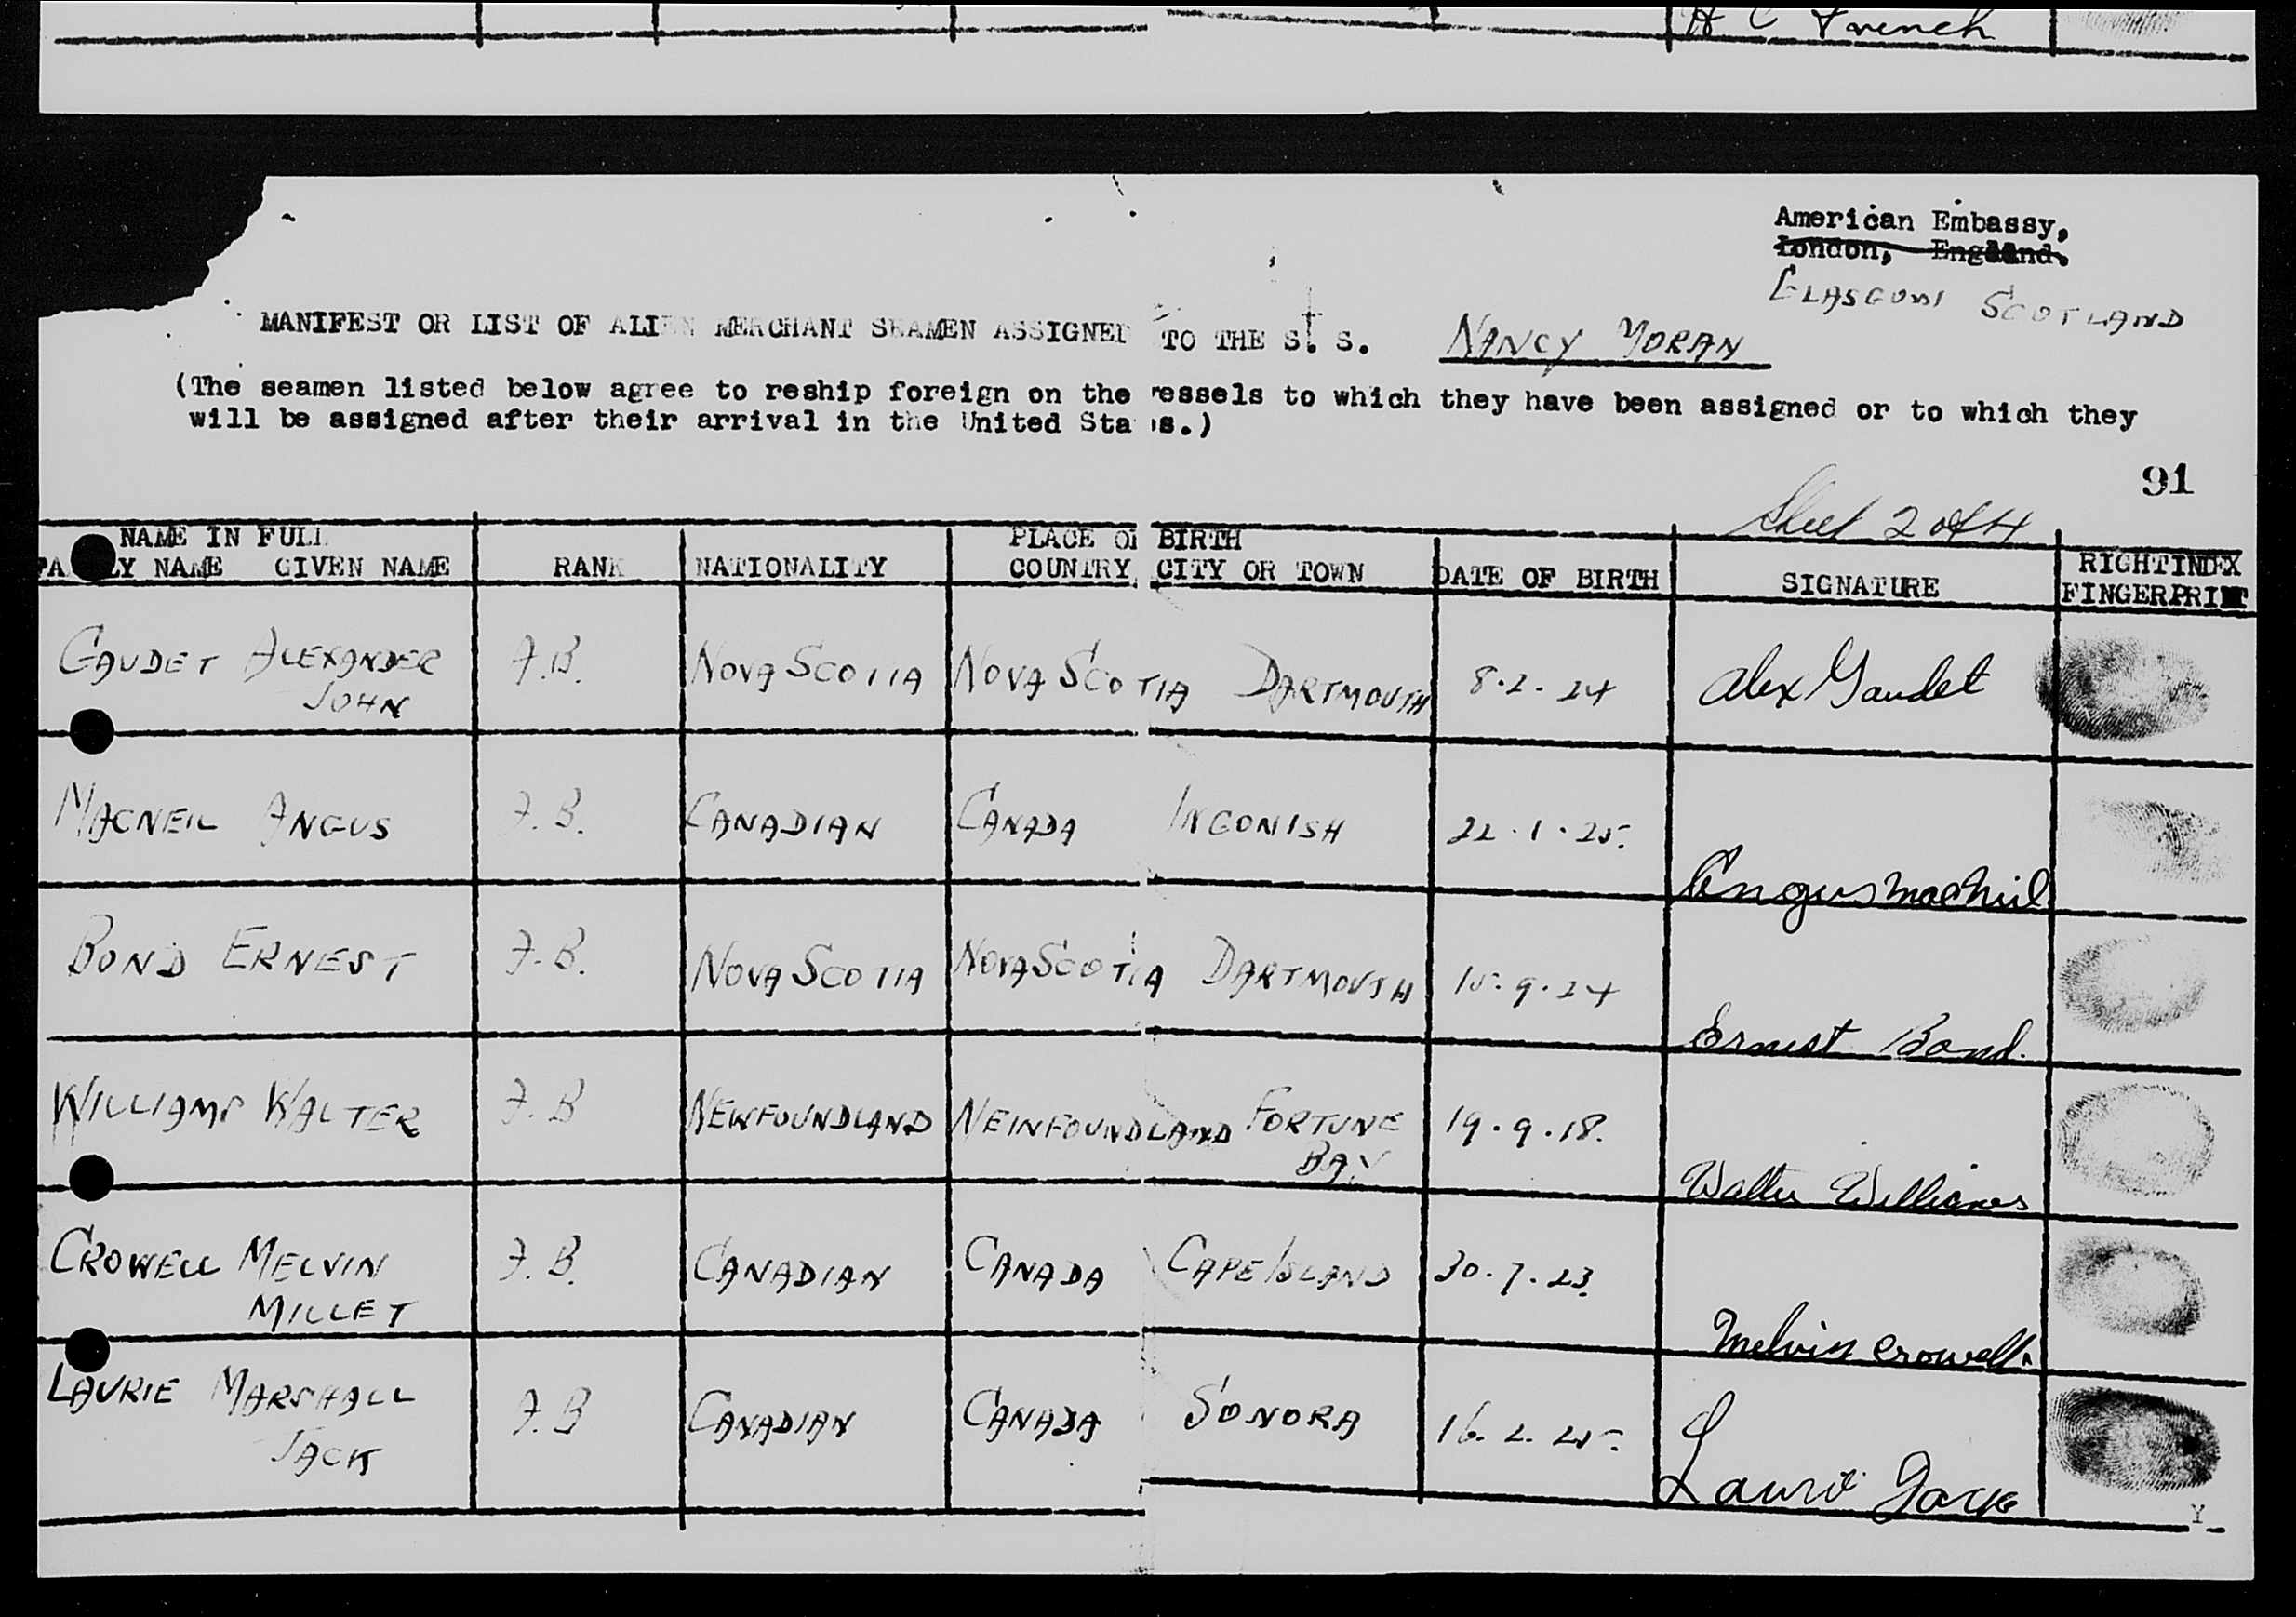 H C French
American Embassy,
London, England.
GLASGOW SCOTLAND
MANIFEST OR LIST OF ALIEN MERCHANT SEAMEN ASSIGNED TO THE S. S. NANCY MORAN
(The seamen listed below agree to reship foreign on the vessels to which they have been assigned or to which they
will be assigned after their arrival in the United States.)
91
Sheet 2 of 4
NAME IN FULL PLACE OF BIRTH RIGHT INDEX
FAMILY NAME GIVEN NAME RANK NATIONALITY COUNTRY CITY OR TOWN DATE OF BIRTH SIGNATURE FINGERPRINT
GAUDET ALEXANDER A.B. NOVA SCOTIA NOVA SCOTIA DARTMOUTH 8.2.24 Alex Gaudet
JOHN
MACNEIL ANGUS A.B. CANADIAN CANADA INGONISH 22.1.25. Angus MacNeil
BOND ERNEST A.B. NOVA SCOTIA NOVA SCOTIA DARTMOUTH 15.9.24 Ernest Bond.
WILLIAMS WALTER A.B NEWFOUNDLAND NEWFOUNDLAND FORTUNE 19.9.18. Walter Williams
BAY
CROWELL MELVIN A.B. CANADIAN CANADA CAPE ISLAND 30.7.23. Melvin Crowell.
MILLET
LAURIE MARSHALL A.B CANADIAN CANADA SONORA 16.2.25. Laurie Jack
JACK
Y